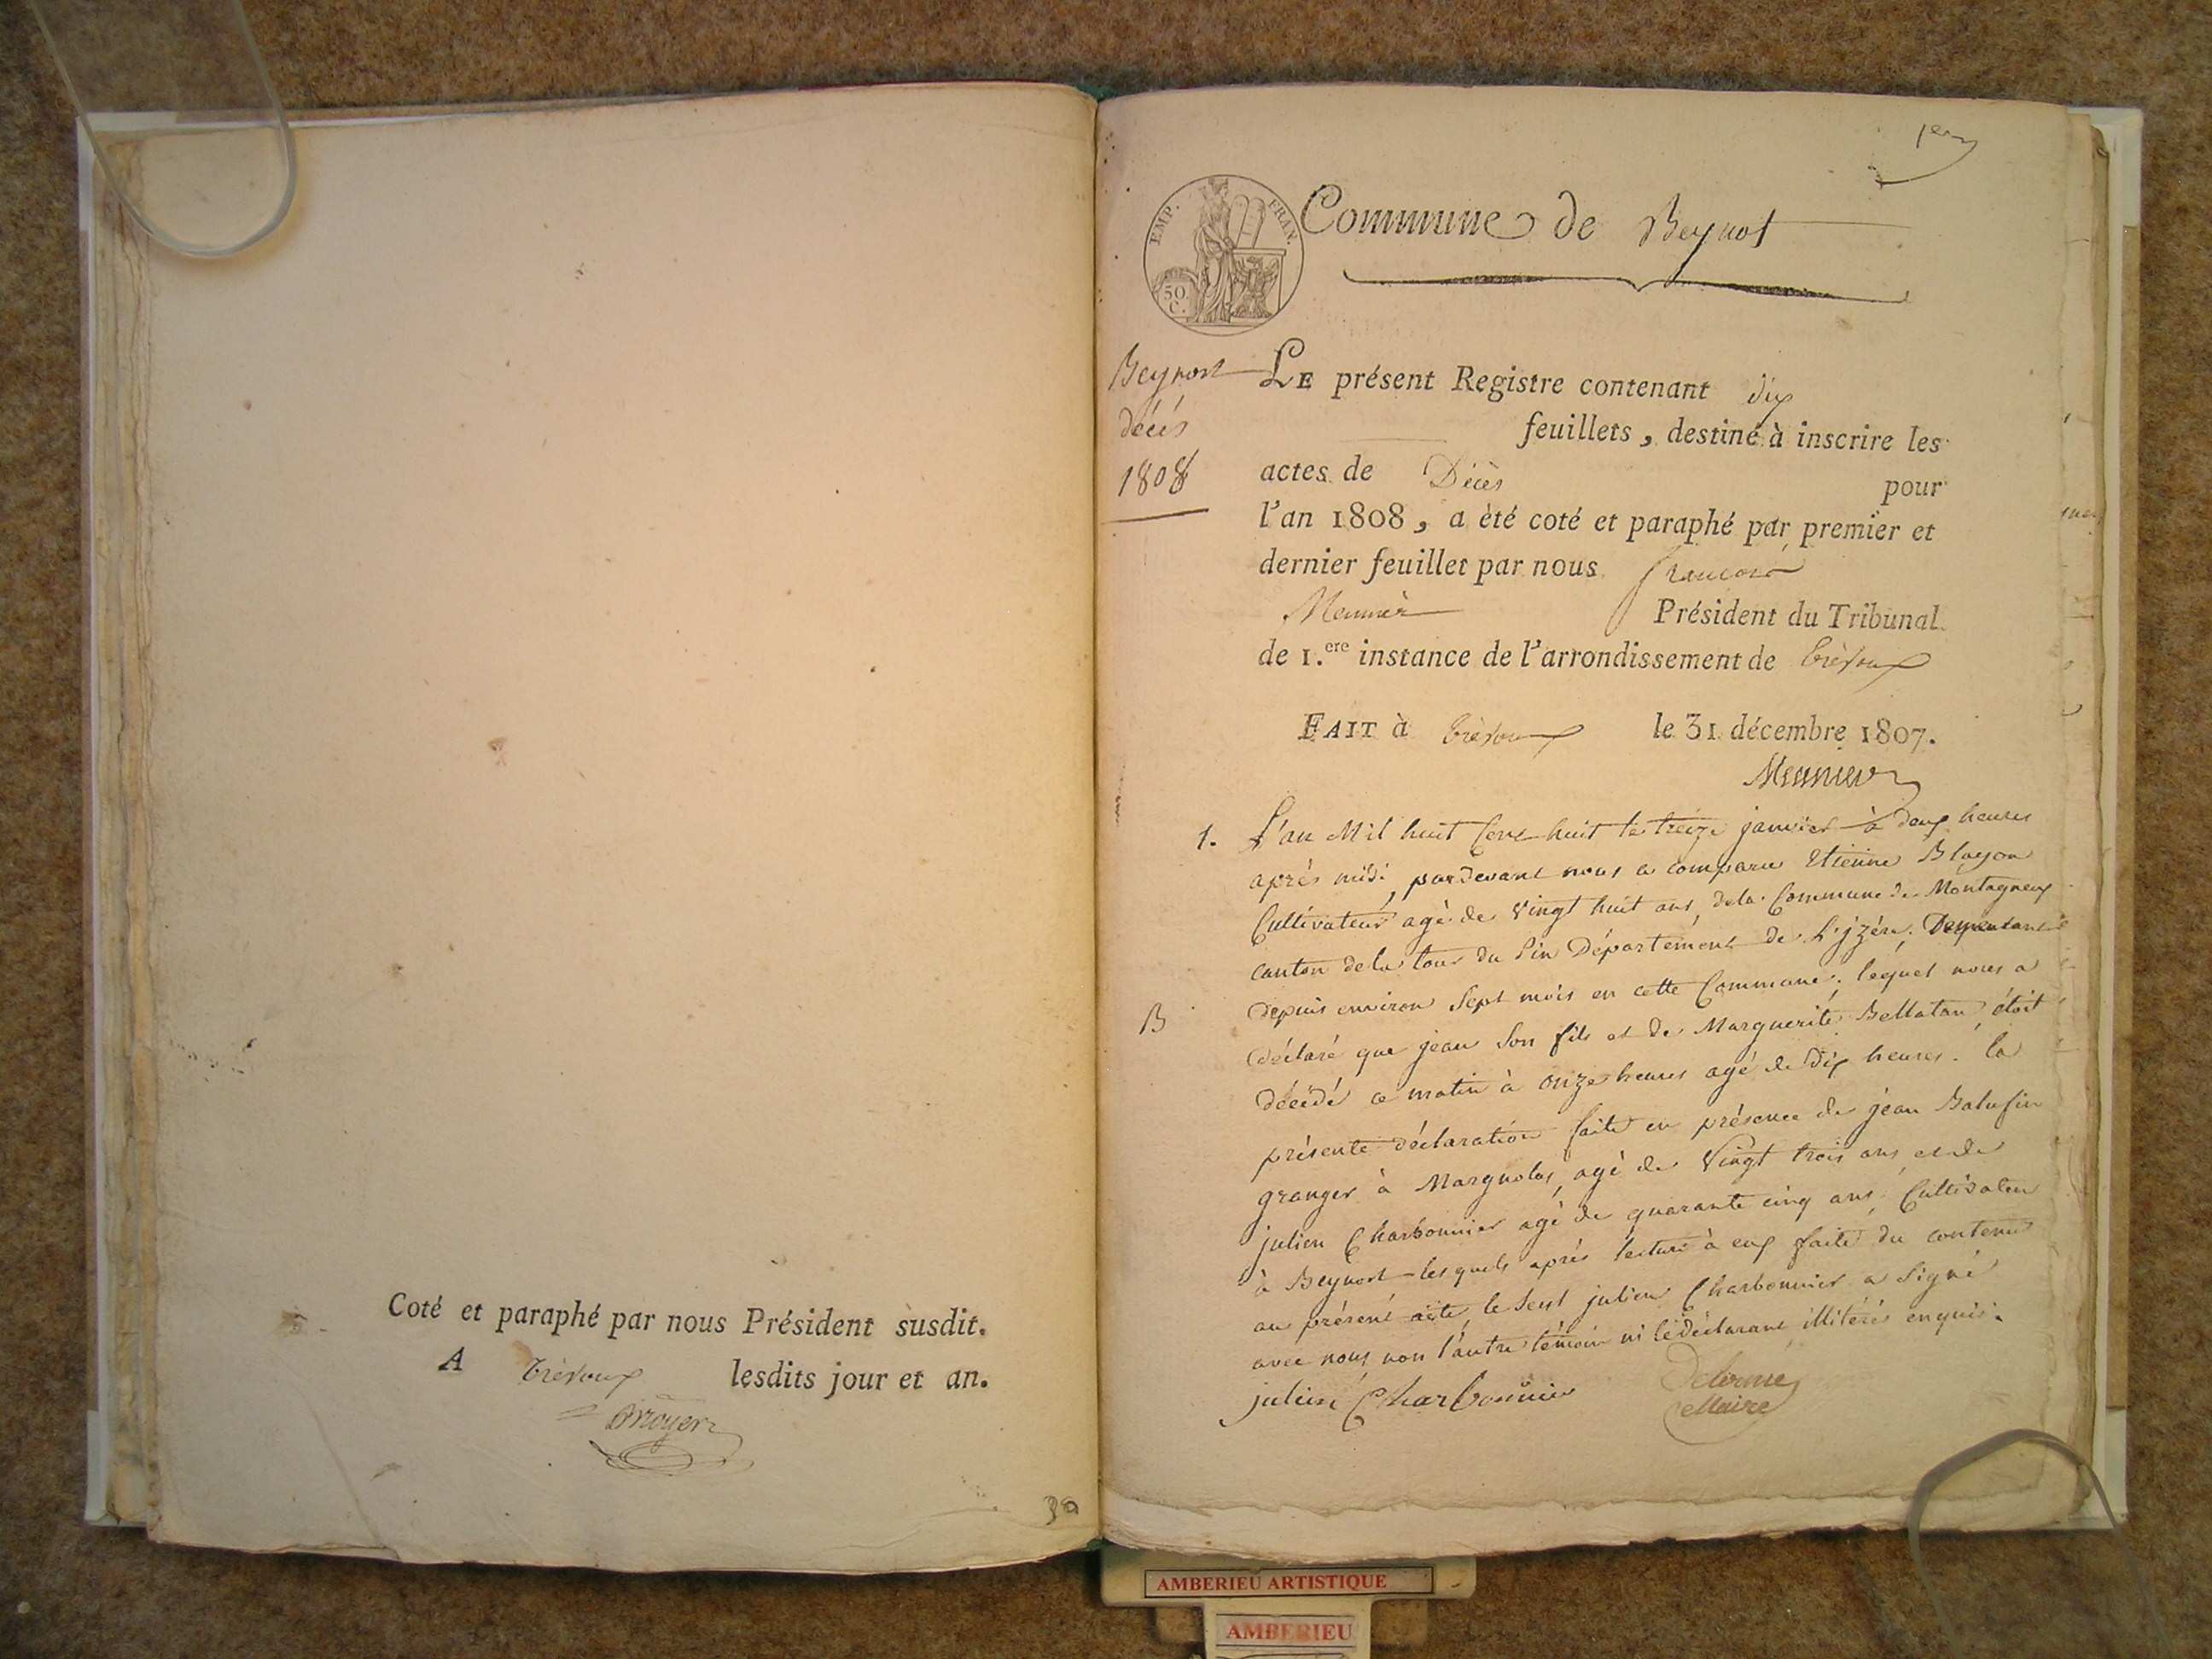 Coté et paraphé par nous Président susdit.
A Trévoux lesdits jour et an.
30
1er
EMP. FRAN.
50 C.
Commune de Beynost
Beynost
décés
1808
LE présent Registre contenant dix
feuillets, destiné à inscrire les
actes de Décès pour
l'an 1808, a été coté et paraphé par premier et
dernier feuillet par nous françois
Meunier Président du Tribunal
de 1.ere instance de l'arrondissement de trévoux
FAIT à trévoux le 31 décembre 1807.
Meunier
1. L'an Mil huit Cent huit le treize janvier à deux heures
après midi, pardevant nous a comparu Etienne Blayon
Cultivateur agé de Vingt huit ans, dela Commune de Montagneux
canton dela tour du Pin Département de L'jzére, Demeurant
depuis environ Sept mois en cette Commune, lequel nous a
B
déclaré que jean Son fils et de Marguerite Bellatan étoit
décédé ce matin à onze heures agé de Dix heures. la
présente déclaration faite en présence de jean Balufin
granger à Margnolas, agé de Vingt trois ans et de
julien Charbonnier agé de quarante cinq ans, Cultivateur
à Beynost lesquels après lecture à eux faite du contenu
au présent acte, le Seul julien Charbonnier a Signé
avec nous non l'autre témoin ni le déclarant illitérés enquis.
julien Charbonnier
Delorme
Maire
AMBERIEU ARTISTIQUE
AMBERIEU